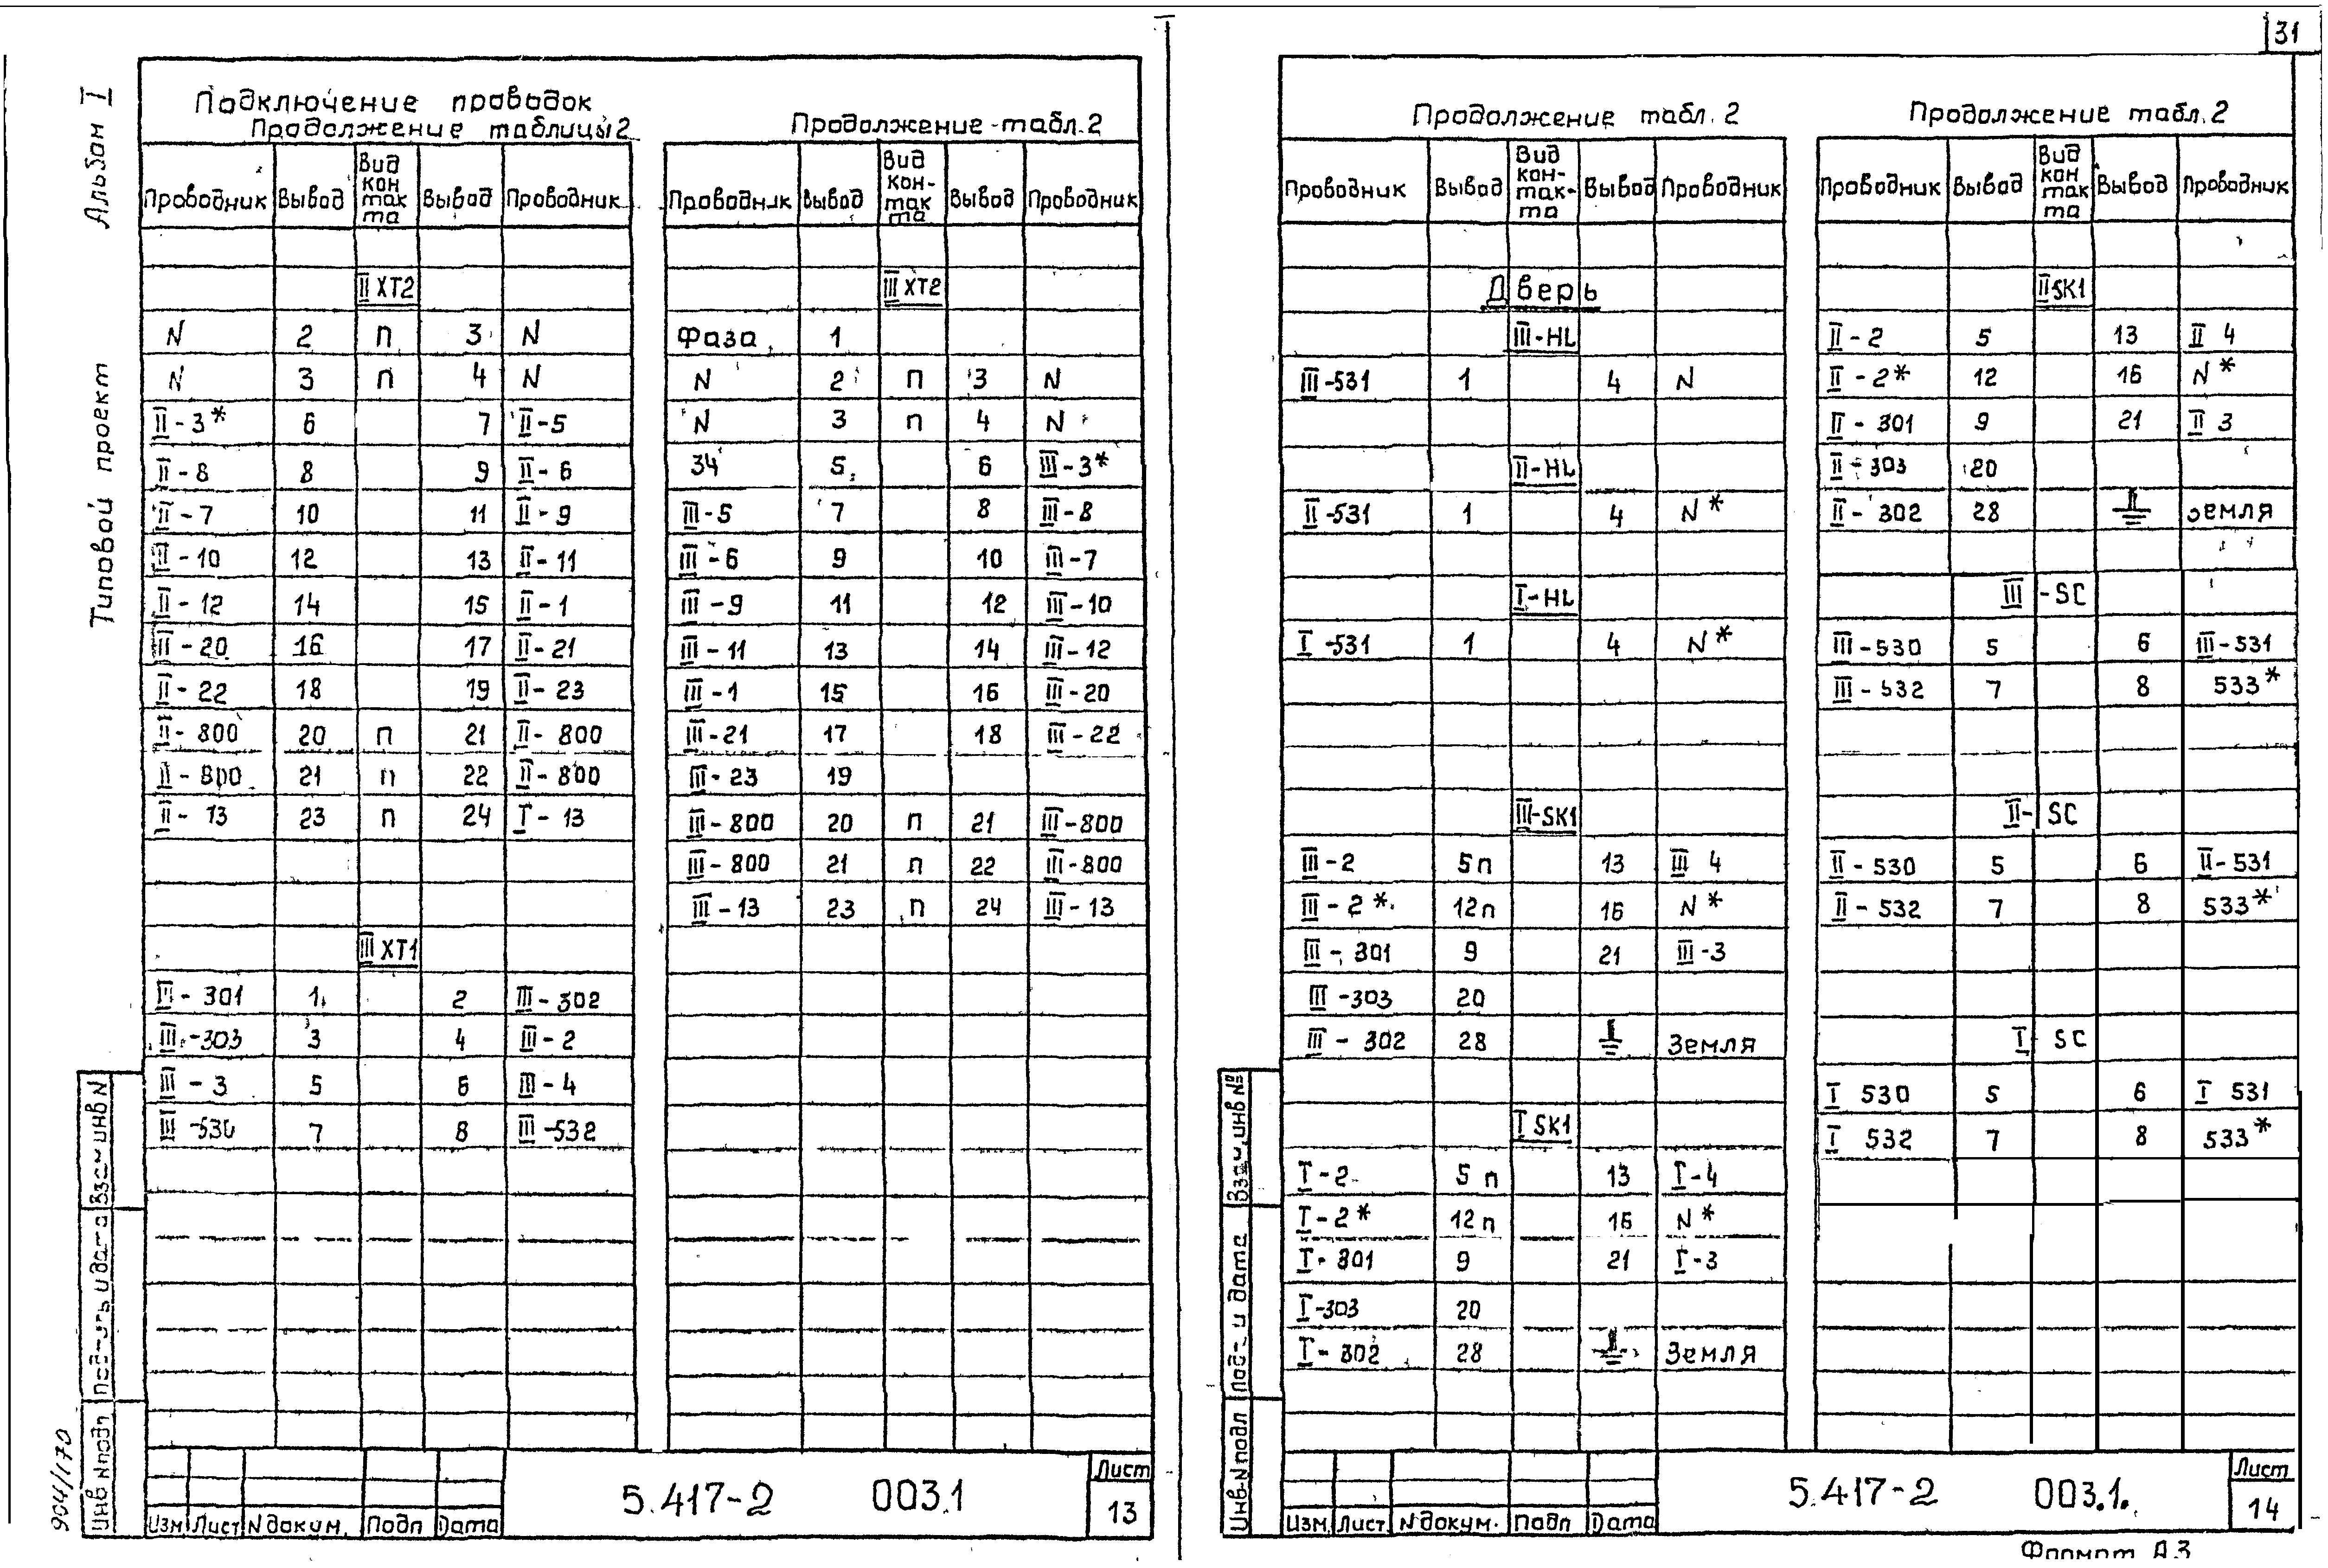 31
Альбом I
Типовой проект
Подключение проводок
Продолжение таблицы 2
Проводник Вывод Вид кон так та Вывод Проводник
II XT2
N 2 п 3 N
N 3 п 4 N
II-3* 6 7 II-5
II-8 8 9 II-6
II-7 10 11 II-9
II-10 12 13 II-11
II-12 14 15 II-1
III-20 16 17 II-21
II-22 18 19 II-23
II-800 20 п 21 II-800
II-800 21 п 22 II-800
II-13 23 п 24 I-13
III XT1
III-301 1 2 III-302
III-303 3 4 III-2
III-3 5 6 III-4
III-530 7 8 III-532
Продолжение табл. 2
Проводник Вывод Вид кон- так та Вывод Проводник
III XT2
Фаза 1
N 2 п 3 N
N 3 п 4 N
34 5 6 III-3*
III-5 7 8 III-8
III-6 9 10 III-7
III-9 11 12 III-10
III-11 13 14 III-12
III-1 15 16 III-20
III-21 17 18 III-22
III-23 19
III-800 20 п 21 III-800
III-800 21 п 22 III-800
III-13 23 п 24 III-13
904/170
Инв. N подл Подпись и дата Взам инв N
Изм Лист N докум. Подп Дата
5.417-2 003.1
Лист
13
Продолжение табл. 2
Проводник Вывод Вид кон- так- та Вывод Проводник
Дверь
III-HL
III-531 1 4 N
II-HL
II-531 1 4 N*
I-HL
I-531 1 4 N*
III-SK1
III-2 5п 13 III 4
III-2* 12п 16 N*
III-301 9 21 III-3
III-303 20
III-302 28 Земля
I SK1
I-2 5 п 13 I-4
I-2* 12п 16 N*
I-301 9 21 I-3
I-303 20
I-302 28 Земля
Продолжение табл. 2
Проводник Вывод Вид кон так та Вывод Проводник
II SK1
II-2 5 13 II 4
II-2* 12 16 N*
II-301 9 21 II 3
II-303 20
II-302 28 земля
III-SC
III-530 5 6 III-531
III-532 7 8 533*
II-SC
II-530 5 6 II-531
II-532 7 8 533*
I SC
I 530 5 6 I 531
I 532 7 8 533*
Инв. N подл Подп и дата Взам, инв №
Изм. Лист N докум. Подп Дата
5.417-2 003.1.
Лист
14
Формат А3